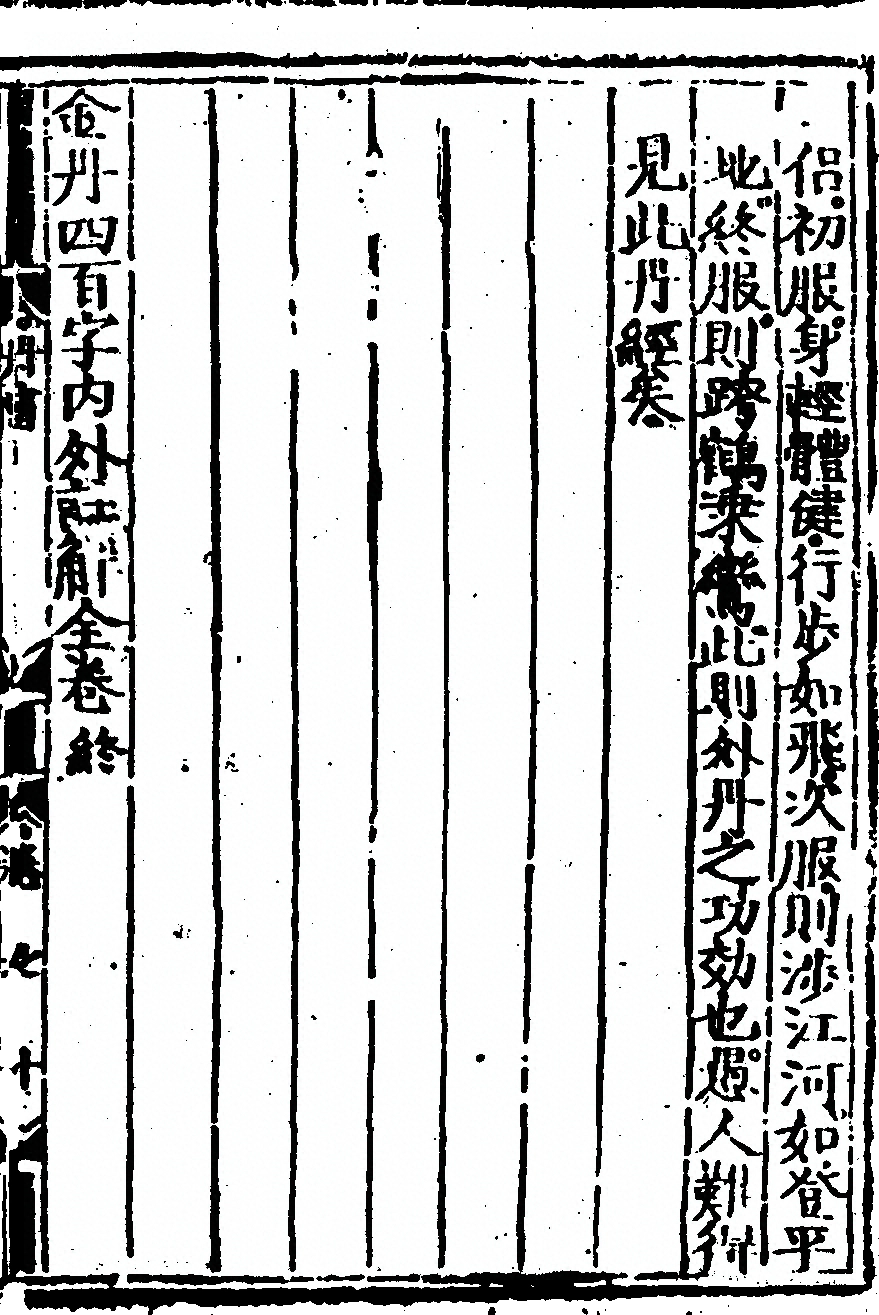 侣初服身輕體健行步如飛次服則涉江河如登平
地終服則跨鶴乘鸞此則外丹之功効也遇人難得
見此丹經矣
金丹四百字内外註解全卷終